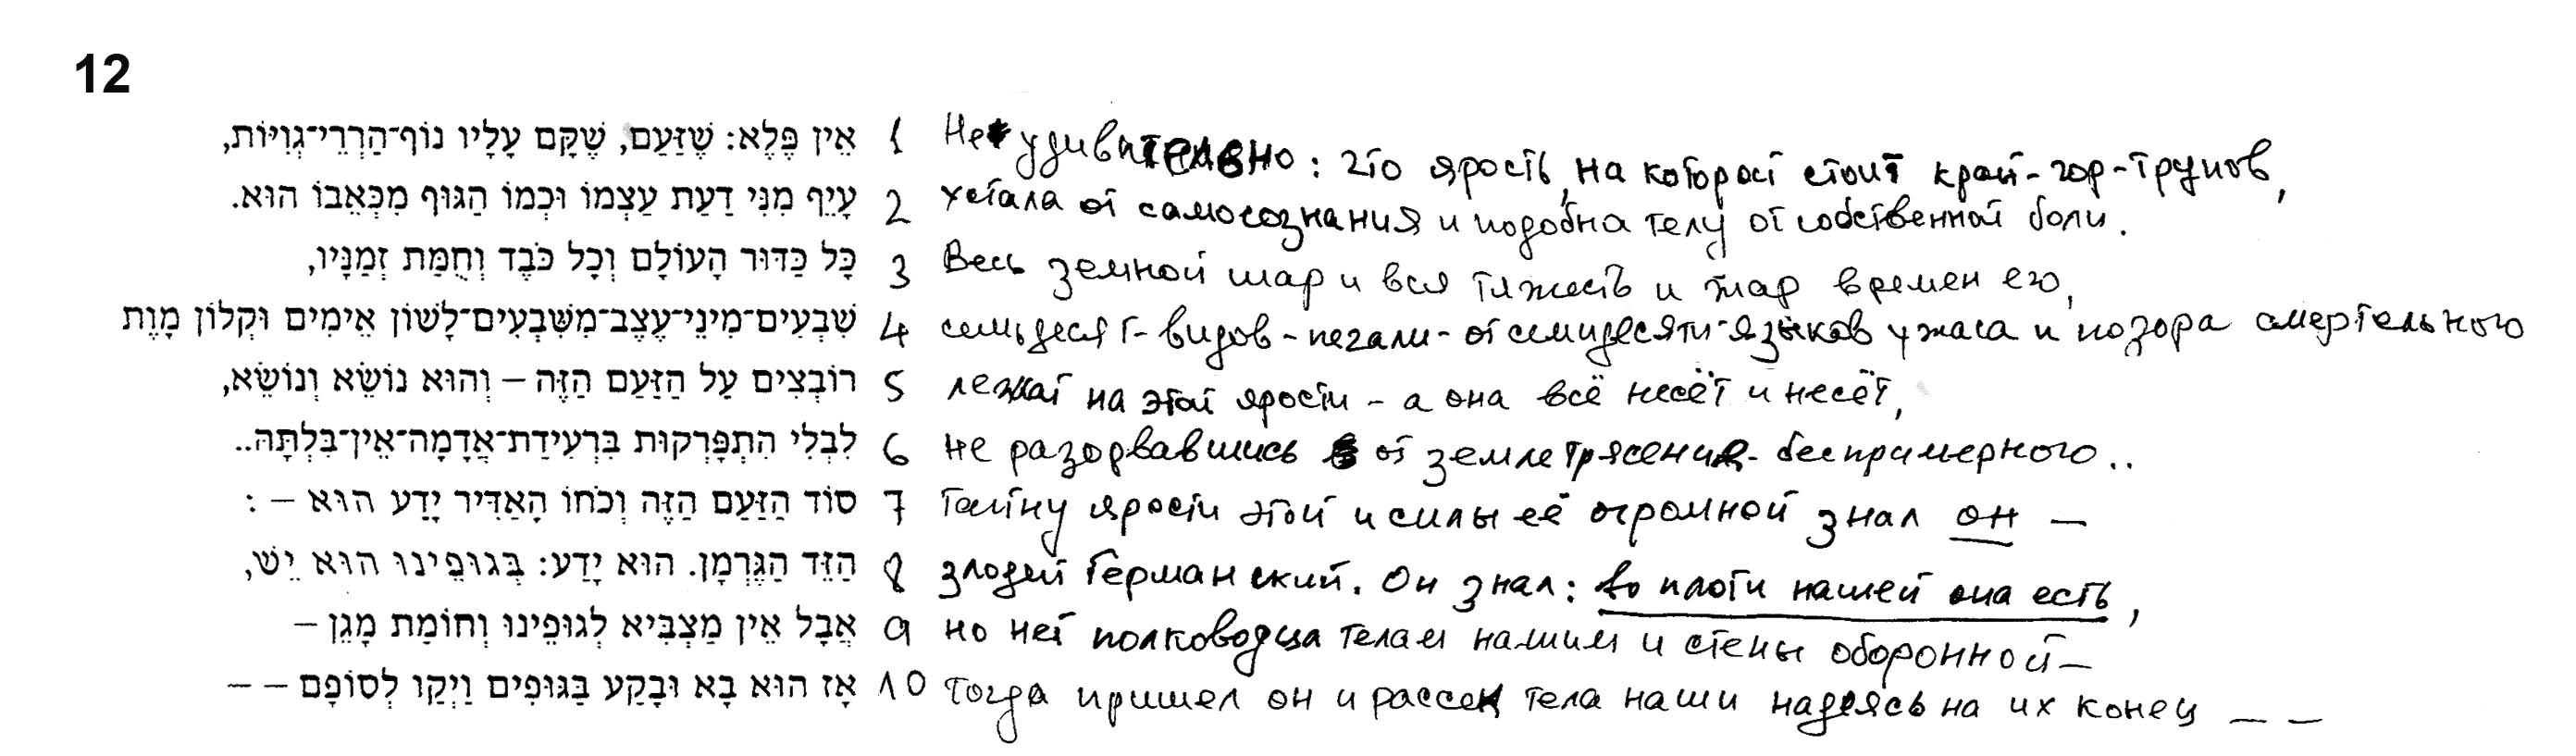 12
אֵין פֶּלֶא: שֶׁזַּעַם, שֶׁקָּם עָלָיו נוֹף־הַרְרֵי־גְוִיּוֹת, 1 Не удивительно: что ярость, на которой стоит край-гор-трупов,
עָיֵף מִנִּי דַעַת עַצְמוֹ וּכְמוֹ הַגּוּף מִכְּאֵבוֹ הוּא. 2 устала от самосознания и подобна телу от собственной боли.
כָּל כַּדּוּר הָעוֹלָם וְכָל כֹּבֶד וְחֻמַּת זְמַנָּיו, 3 Весь земной шар и вся тяжесть и жар времен его,
שִׁבְעִים־מִינֵי־עֶצֶב־מִשִּׁבְעִים־לָשׁוֹן אֵימִים וּקְלוֹן מָוֶת 4 семьдесят-видов-печали-от семидесяти-языков ужаса и позора смертельного
רוֹבְצִים עַל הַזַּעַם הַזֶּה – וְהוּא נוֹשֵׂא וְנוֹשֵׂא, 5 лежат на этой ярости - а она всё несёт и несёт,
לִבְלִי הִתְפָּרְקוּת בִּרְעִידַת־אֲדָמָה־אֵין־בִּלְתָּהּ.. 6 не разорвавшись от землетрясения-беспримерного..
סוֹד הַזַּעַם הַזֶּה וְכֹחוֹ הָאַדִּיר יָדַע הוּא – : 7 Тайну ярости этой и силы её огромной знал он –
הַזֵּד הַגֶּרְמָן. הוּא יָדַע: בְּגוּפֵינוּ הוּא יֵשׁ, 8 злодей германский. Он знал: во плоти нашей она есть,
אֲבָל אֵין מַצְבִּיא לְגוּפֵינוּ וְחוֹמַת מָגֵן – 9 но нет полководца телам нашим и стены оборонной –
אָז הוּא בָא וּבָקַע בַּגּוּפִים וַיְקַו לְסוֹפָם – – 10 тогда пришел он и рассек тела наши надеясь на их конец – –